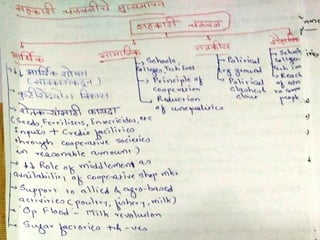 सहकारी चळवळीचे मुल्यमापन
सहकारी चळवळ
आर्थिक सामाजिक राजकीय शैक्षणिक
↓↓ आर्थिक शोषण
(सावकारांकडून)
कुटीरोद्योग विकास
शेतकऱ्यांसाठी फायदा
(Seeds, Fertilisers, Insecticides, etc
Inputs + Credit facilities
through cooperative societies
in reasonable amount)
↓↓ Role of middlemen as
availability of cooperative shop mkt
Support to allied & agro-based
activities (poultry, fishery, milk)
Op Flood - Milk revolution
Sugar factories
Schools,
Colleges, Tech Inst
Principle of
cooperation
Reduction
of inequalities
Political
ground
Political
clout
Schools
Colleges
Reach
people